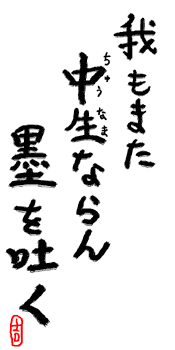 我もまた
中生ならん
ちゅうなま
墨を吐く